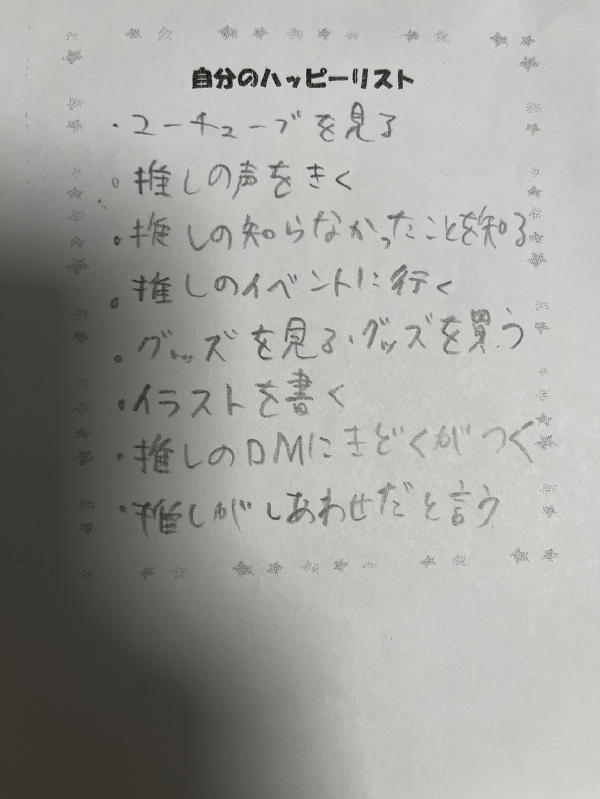 自分のハッピーリスト
・ユーチューブを見る
。推しの声をきく
。推しの知らなかったことを知る
。推しのイベントに行く
。グッズを見る・グッズを買う
・イラストを書く
・推しのDMにきどくがつく
・推しがしあわせだと言う